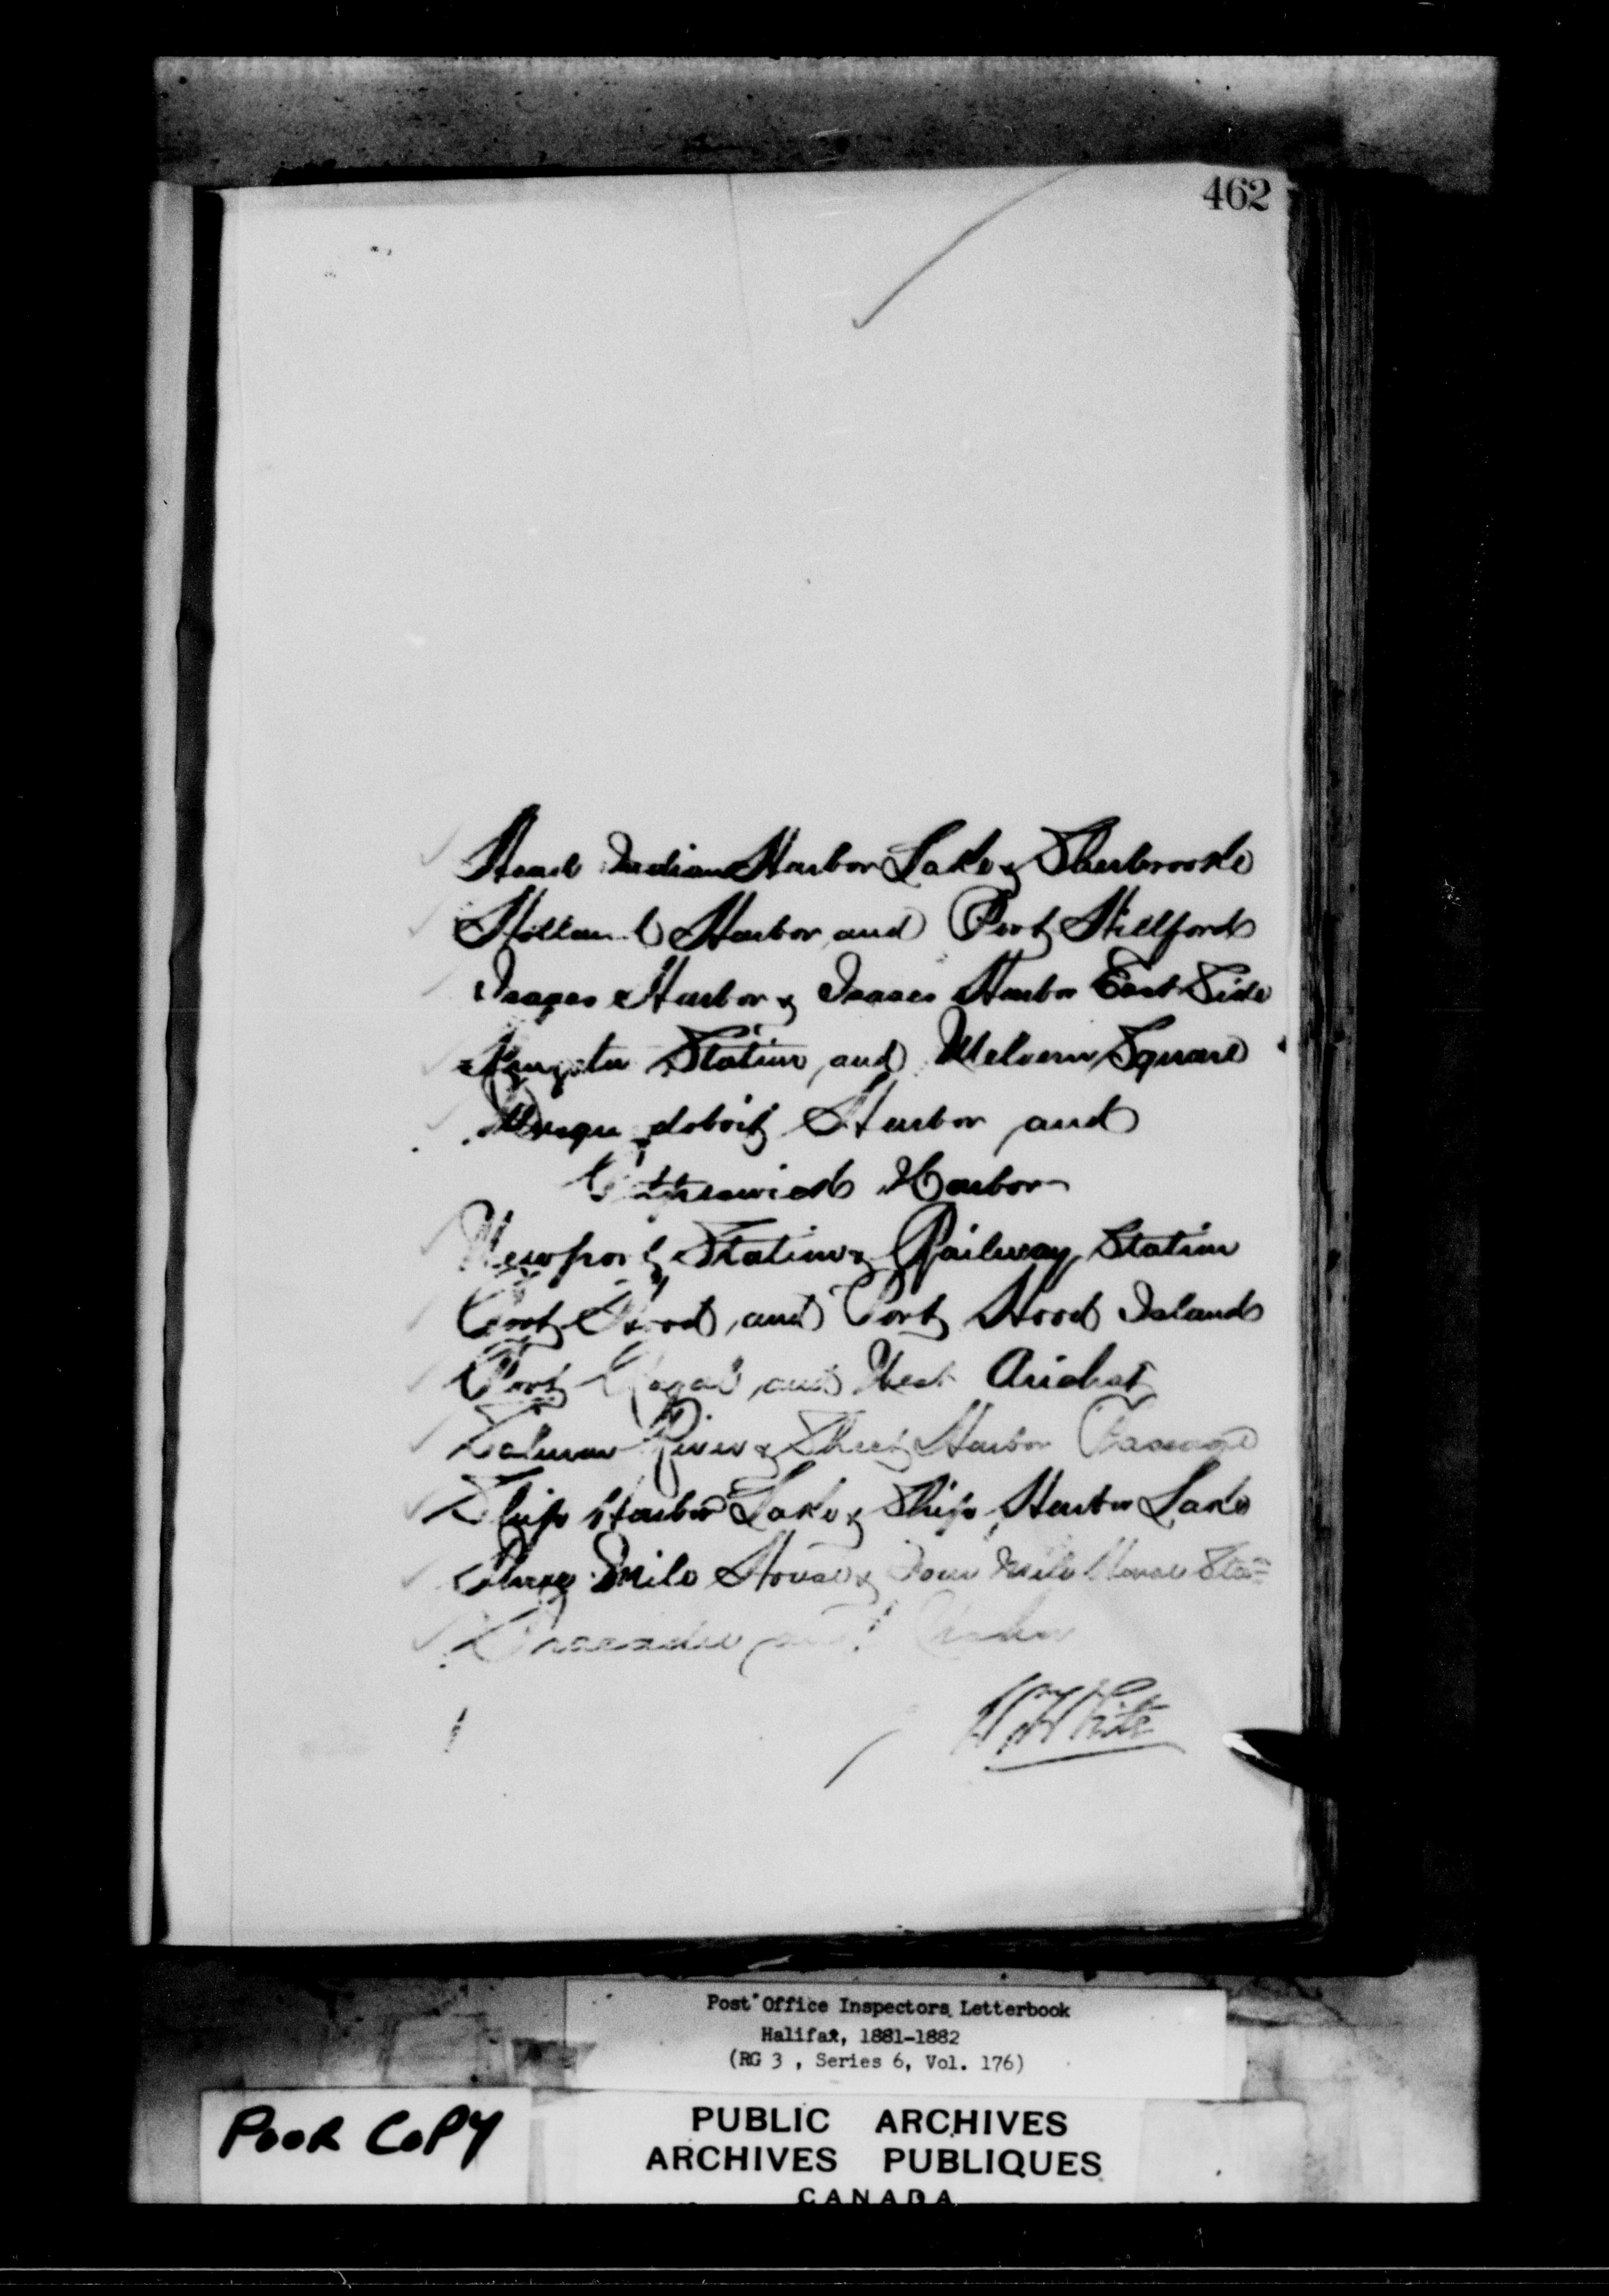 462
Head Indian Harbor Lake & Sherbrooke
Holland Harbor and Port Hillford
Isaacs Harbor & Isaacs Harbor East Side
Kingston Station and Melvern Square
Musquodoboit Harbor and
Petpeswick Harbor
Newport Station & Railway Station
Port Hood and Port Hood Island
Port Royal and West Arichat
Salmon River & Sheet Harbor Passage
Ship Harbor Lake & Ship Harbor Lake
Three Mile House & Four Mile House Sta=
Tracadie and
White
Post Office Inspectors Letterbook
Halifax, 1881-1882
(RG 3 , Series 6, Vol. 176)
POOR COPY
PUBLIC ARCHIVES
ARCHIVES PUBLIQUES
CANADA